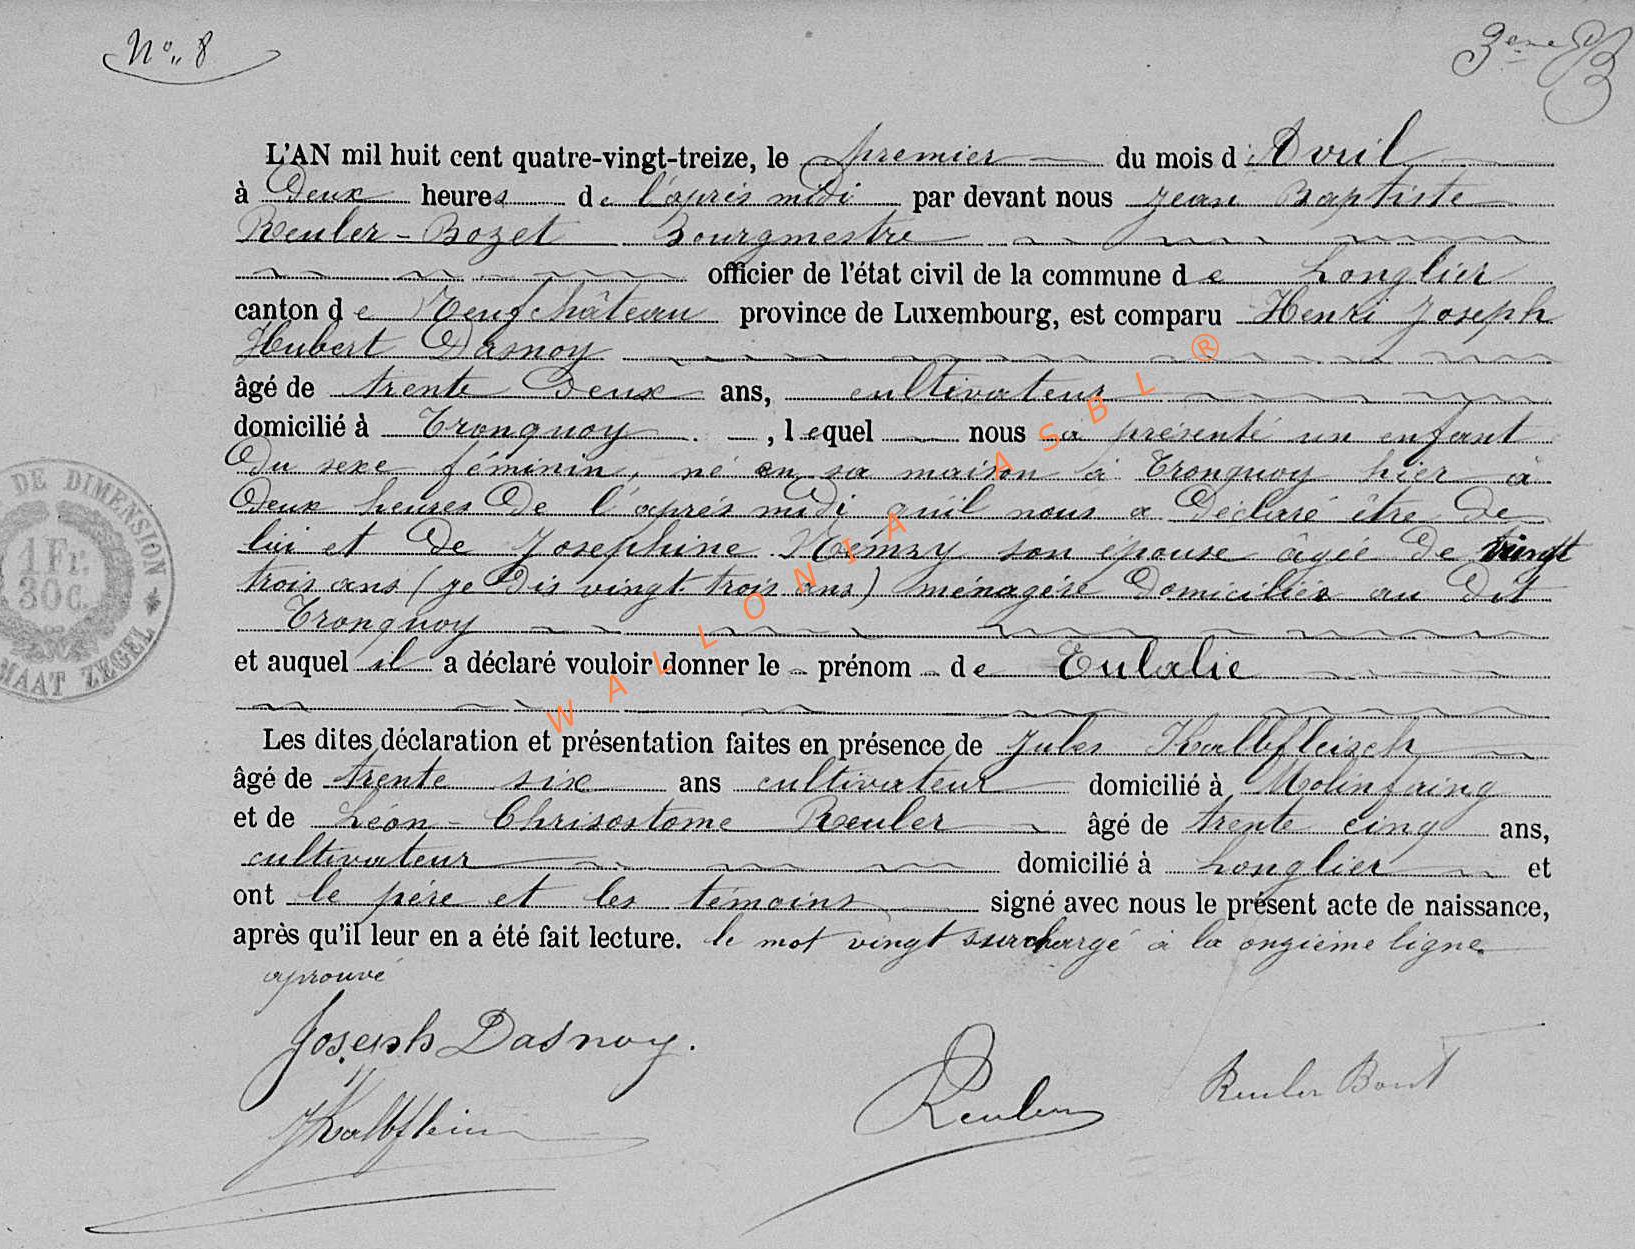 N° 8
3eme
L'AN mil huit cent quatre-vingt-treize, le premier du mois d'Avril
à Deux heures de l'aprés midi par devant nous Jean Baptiste
Reuler-Bozet Bourgmestre
officier de l'état civil de la commune de Longlier
canton de Neufchâteau province de Luxembourg, est comparu Henri Joseph
Hubert Dasnoy
âgé de trente Deux ans, cultivateur
domicilié à Tronquoy, lequel nous a présenté un enfant
Du sexe féminin, né en sa maison à Tronquoy hier à
Deux heures De l'aprés midi qu'il nous a Déclaré être De
lui et De Josephine Némry son épouse âgée De vingt
trois ans (je Dis vingt trois ans) ménagére Domiciliée au Dit
Tronquoy
et auquel il a déclaré vouloir donner le prénom de Eulalie
Les dites déclaration et présentation faites en présence de Jules Kalbfleisch
âgé de trente six ans cultivateur domicilié à Molinfaing
et de Léon-Chrisostome Reuler âgé de trente cinq ans,
cultivateur domicilié à Longlier et
ont le pére et les témoins signé avec nous le présent acte de naissance,
après qu'il leur en a été fait lecture. le mot vingt surchargé à la onziéme ligne
aprouvé
Joseph Dasnoy.
JKalbfleisch
Reuler
Reuler
DE DIMENSION
1 Fr.
30 c.
MAAT ZEGEL
WALLONIA ASBL ®